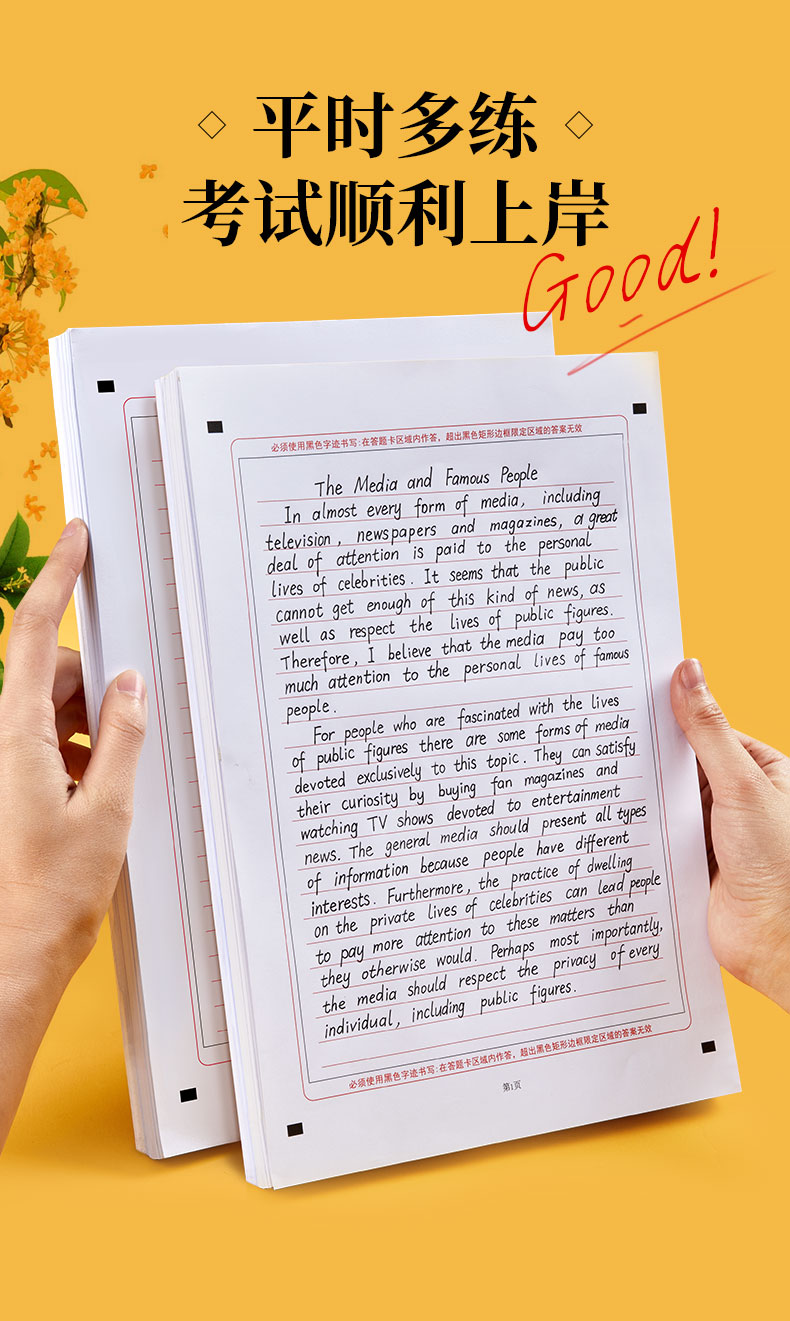 平时多练
考试顺利上岸
Good!
必须使用黑色字迹书写:在答题卡区域内作答，超出黑色矩形边框限定区域的答案无效
The Media and Famous People
In almost every form of media, including
television, newspapers and magazines, a great
deal of attention is paid to the personal
lives of celebrities. It seems that the public
cannot get enough of this kind of news, as
well as respect the lives of public figures.
Therefore, I believe that the media pay too
much attention to the personal lives of famous
people.
For people who are fascinated with the lives
of public figures there are some forms of media
devoted exclusively to this topic. They can satisfy
their curiosity by buying fan magazines and
watching TV shows devoted to entertainment
news. The general media should present all types
of information because people have different
interests. Furthermore, the practice of dwelling
on the private lives of celebrities can lead people
to pay more attention to these matters than
they otherwise would. Perhaps most importantly,
the media should respect the privacy of every
individual, including public figures.
必须使用黑色字迹书写:在答题卡区域内作答，超出黑色矩形边框限定区域的答案无效
第1页